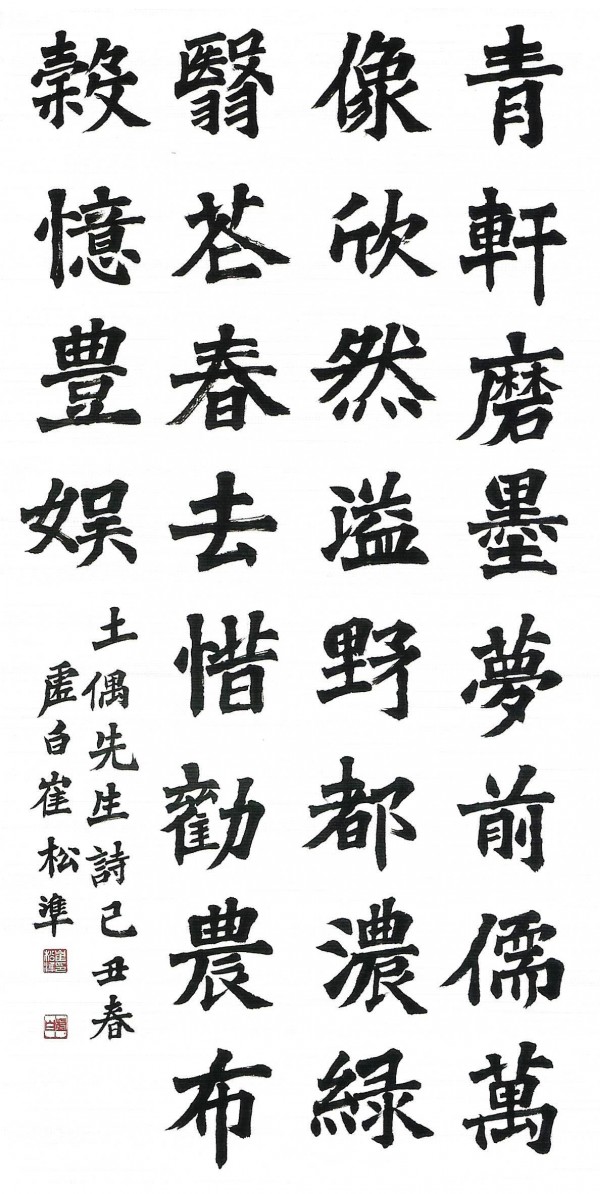 青軒磨墨夢前儒萬
像欣然溢野都濃綠
翳芲春去惜勸農布
穀憶豊娛
土偶先生詩己丑春
虛白崔松準